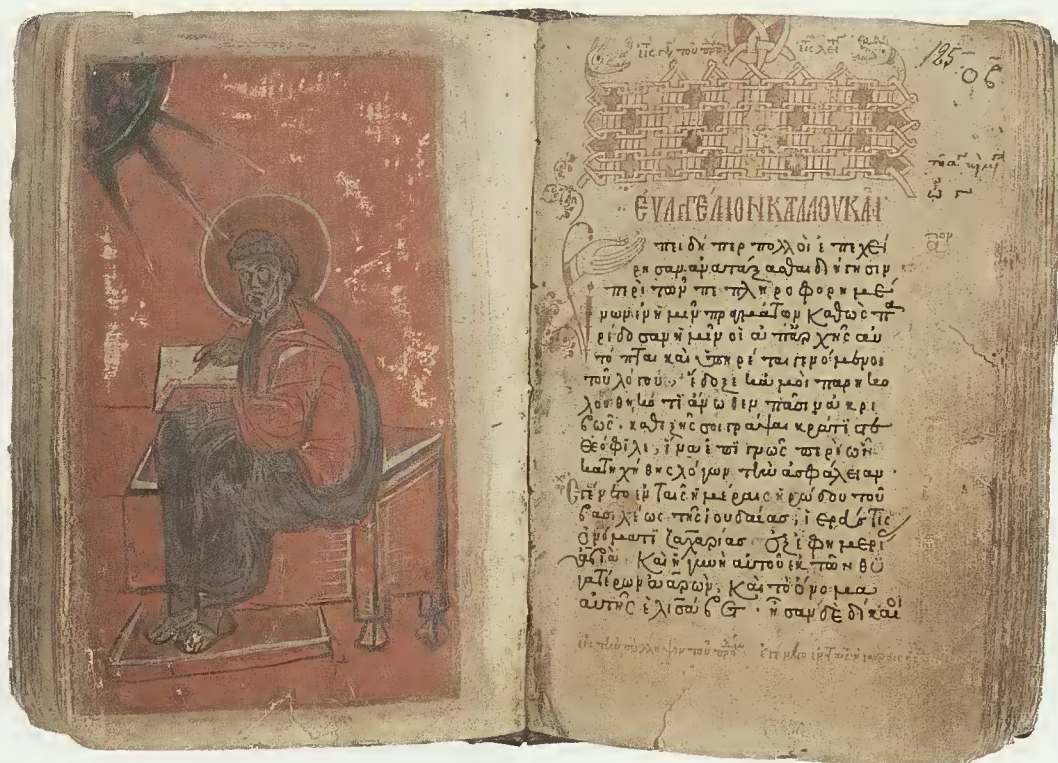 εἰς τ τοῦ προ εἰς λει
125
ος
ΕΥΑΓΓΕΛΙΟΝ ΚΑΤΑ ΛΟΥΚΑΝ
πειδήπερ πολλοὶ ἐπεχεί
ρησαν ἀνατάξασθαι διήγησιν
περὶ τῶν πεπληροφορημέ
νων ἐν ἡμῖν πραγμάτων καθὼς πα
ρέδοσαν ἡμῖν οἱ ἀπαρχῆς αὐ
τόπται καὶ ὑπηρέται γενόμενοι
τοῦ λόγου· ἔδοξε καμοὶ παρηκο
λουθηκότι ἄνωθεν πᾶσιν ἀκρι
βῶς· καθεξῆς σοι γράψαι κράτιστε
Θεόφιλε· ἵνα ἐπιγνῶς περὶ ὧν
κατηχήθης λόγων τὴν ἀσφάλειαν·
Ἐγένετο ἐν ταῖς ἡμέραις ἡρώδου τοῦ
βασιλέως τῆς ἰουδαίας, ἱερεύς τις
ὀνόματι ζαχαρίας ἐξ ἐφημερί
ας ἀβιά· Καὶ ἡ γυνὴ αὐτοῦ ἐκ τῶν θυ
γατέρων ἀαρών, Καὶ τὸ ὄνομα
αὐτῆς ἐλισάβετ· ἦσαν δὲ δίκαιοι